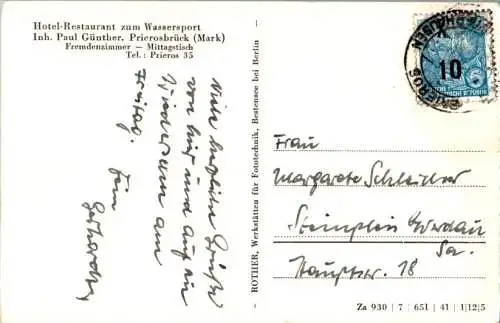 Hotel-Restaurant zum Wassersport
Inh. Paul Günther, Prierosbrück (Mark)
Fremdenzimmer — Mittagstisch
Tel.: Prieros 35
Viele herzliche Grüße
von hier und auf ein
Wiedersehn am
Freitag.
ROTHER, Werkstätten für Fototechnik, Bestensee bei Berlin
10
PRIEROS
Frau
Margarete
Steinpleis Werdau
Sa.
Hauptstr. 18
Za 930 | 7 | 651 | 41 | 1|12|5